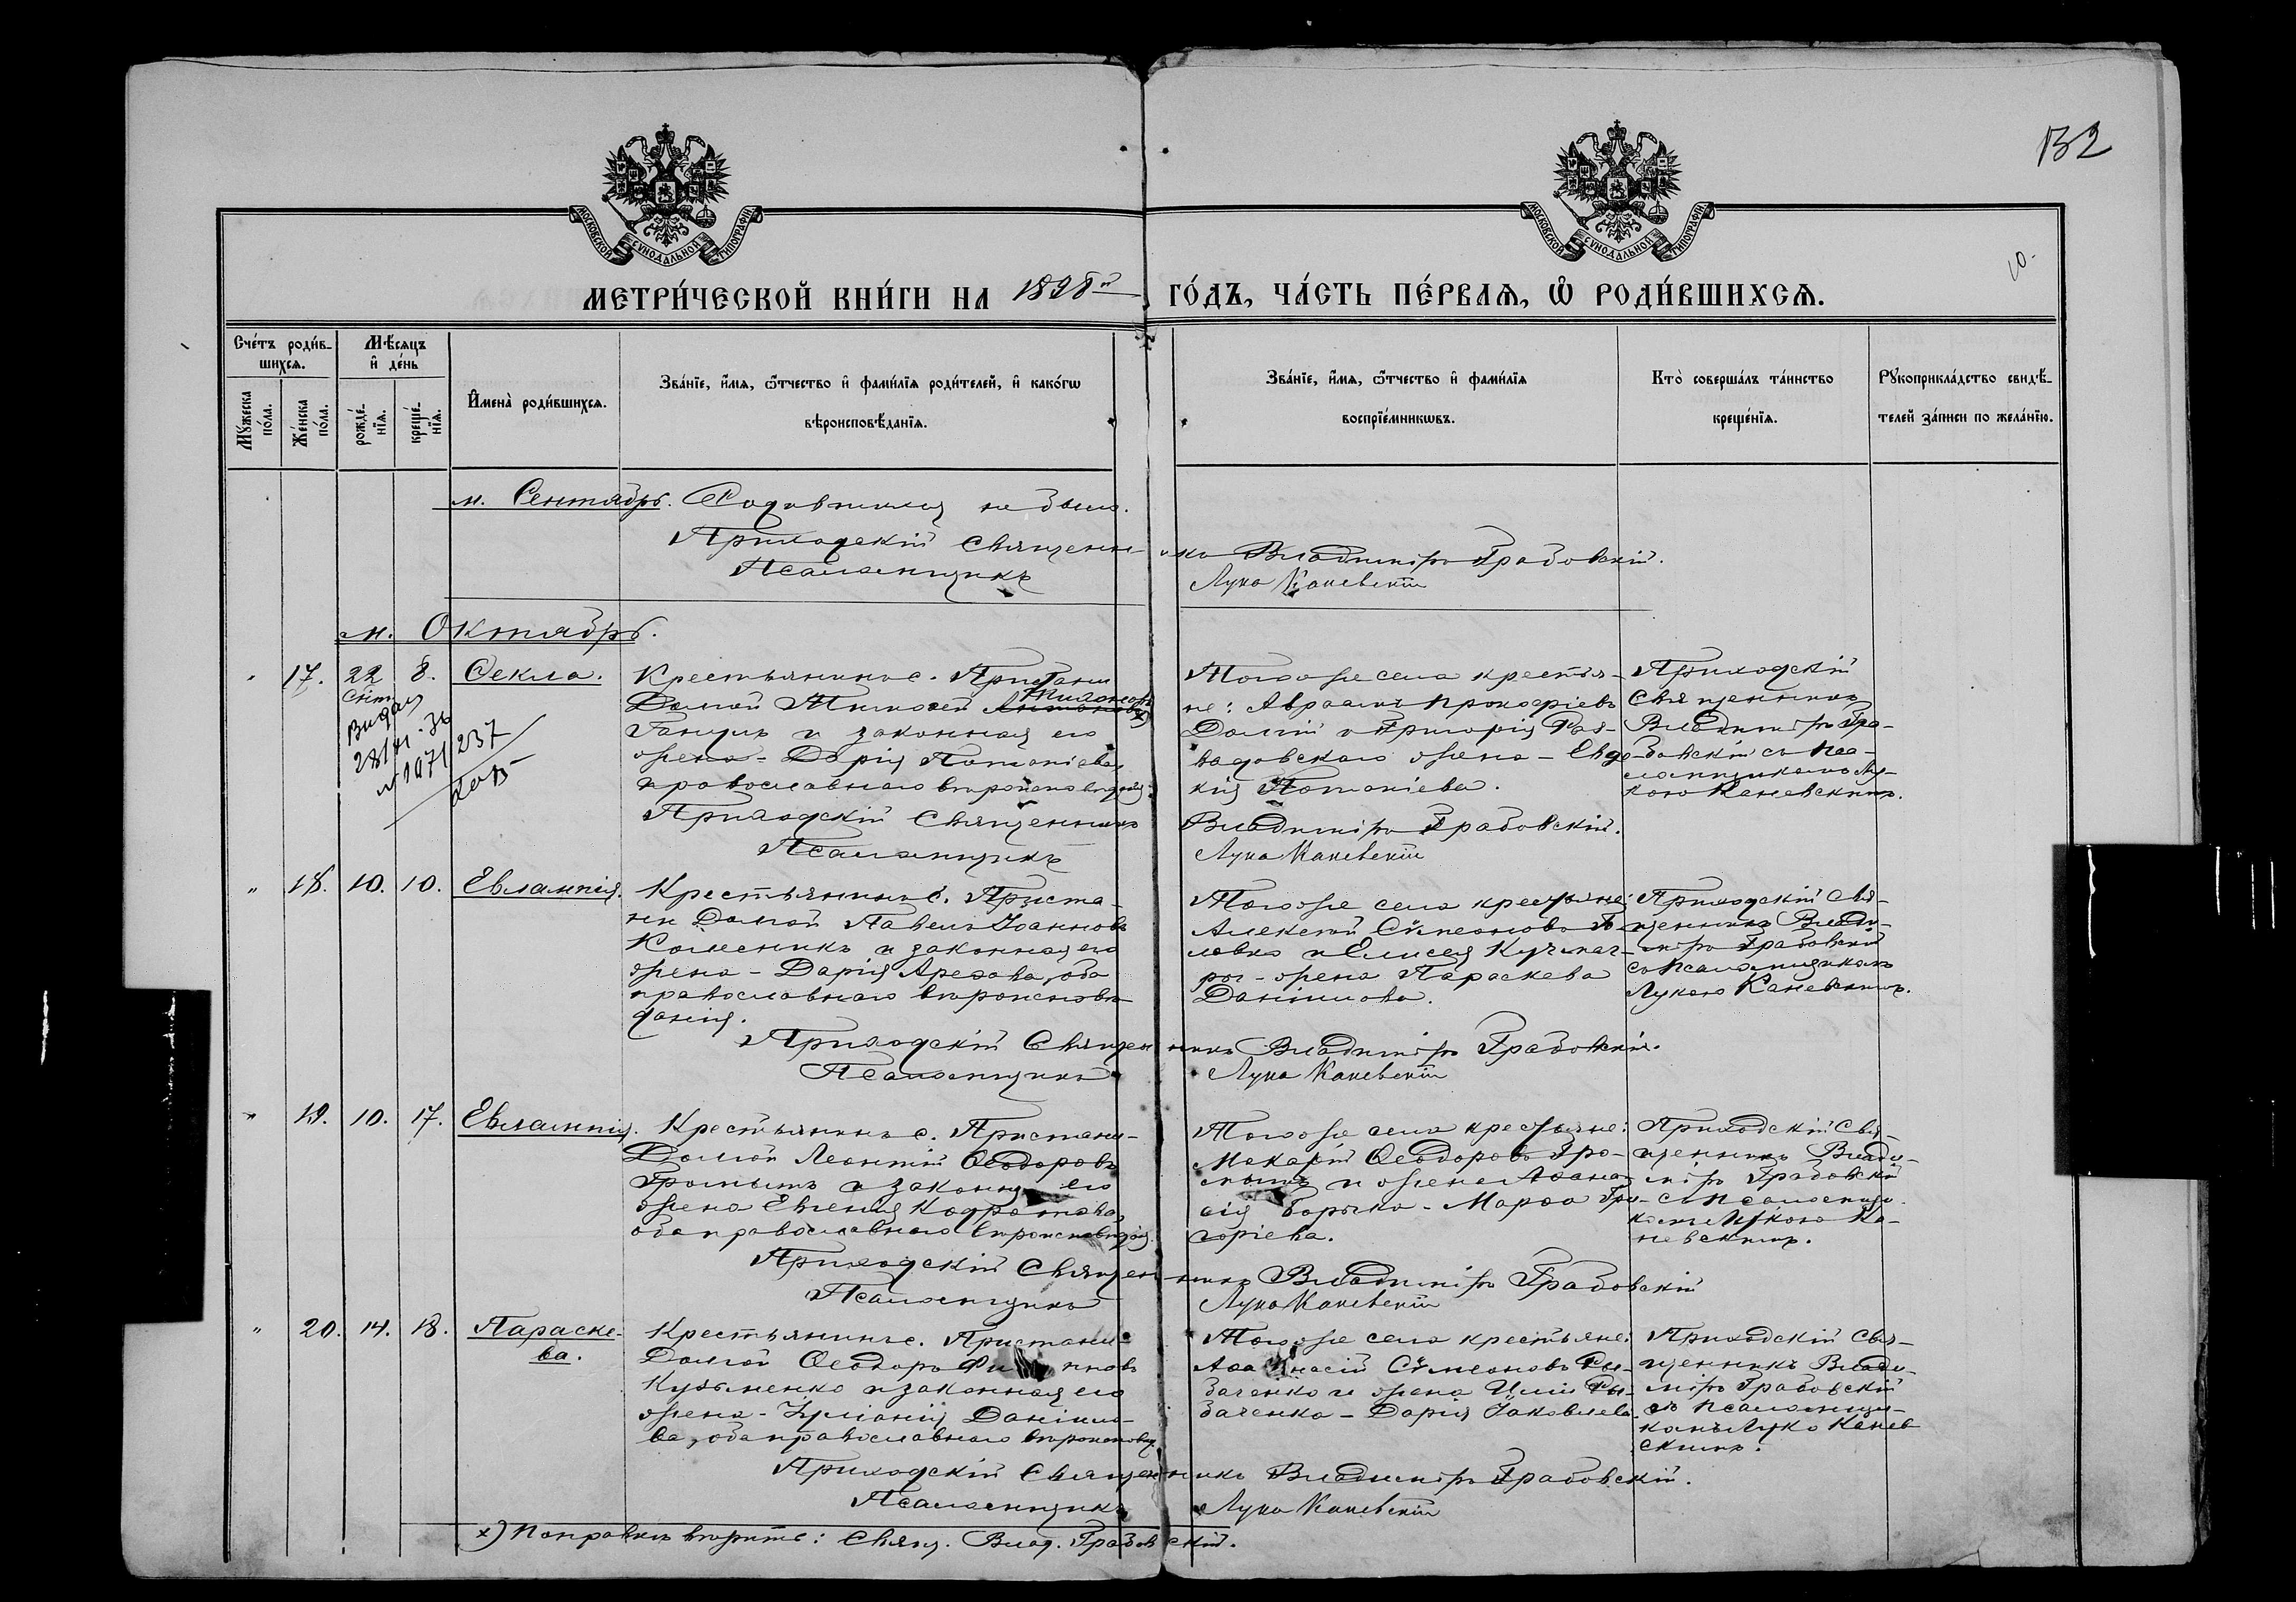 132
10.
МОСКОВСКОЙ СѴНОДАЛЬНОЙ ТИПОГРАФІИ
МОСКОВСКОЙ СѴНОДАЛЬНОЙ ТИПОГРАФІИ
МЕТРИ́ЧЕСКОЙ КНИ́ГИ НА 1898й ГО́ДЪ, ЧА́СТЬ ПЕ́РВАѦ, Ѽ РОДИ́ВШИХСѦ.
Сче́тъ роди́в-
шихсѧ.
Мѣ́сѧцъ
и҆ де́нь
Мꙋ́жеска по́ла.
Же́нска по́ла.
рожде́-нїѧ.
креще́-нїѧ.
И҆мена̀ роди́вшихсѧ.
Зва́нїе, и҆́мѧ, ѻ҆́тчество и҆ фами́лїѧ роди́телей, и҆ како́гѡ
вѣроисповѣ́данїѧ.
Зва́нїе, и҆́мѧ, ѻ҆́тчество и҆ фами́лїѧ
воспрїе́мникѡвъ.
Кто̀ соверша́лъ та́инство
креще́нїѧ.
Рꙋкоприкла́дство свидѣ́-
телей за́писи по жела́нїю.
м. Сентябрь. Родившихся не было.
Приходскій Священникъ Владиміръ Грабовскій.
Псаломщикъ Лука Каневскій
м. Октябрь.
" 17. 22 8. Ѳекла.
Сент.
Видан
237
Крестьянинъ с. Пристани
Долгой Тимоѳей
и законная его
жена - Дарія Потапіева
православнаго вѣроисповѣданія
Того же села крестья-
не: Авраамъ Прокофіевъ
Долгій и Григорія
жена - Евдо-
кія Потапіева.
Приходскій
Священникъ
Владиміръ Гра-
бовскій съ Пса-
ломщикомъ Лу-
кою Каневскимъ.
Приходскій Священникъ Владиміръ Грабовскій.
Псаломщикъ Лука Каневскій
" 18. 10. 10. Евлампія.
Крестьянинъ с. Приста-
ни Долгой Павелъ Іоанновъ
Коленикъ и законная его
жена - Дарія Ареѳова, оба
православнаго вѣроисповѣ-
данія.
Того же села крестьяне:
Алексѣй Сѵмеоновъ
и Елисея
жена Параскева
Даніилова.
Приходскій Свя-
щенникъ Влади-
міръ Грабовскій
съ Псаломщикомъ
Лукою Каневскимъ.
Приходскій Священникъ Владиміръ Грабовскій.
Псаломщикъ Лука Каневскій
" 19. 10. 17. Евлампія.
Крестьянинъ с. Пристани-
Долгой Леонтій Ѳеодоровъ
и законная его
жена Евгенія Кодратова,
оба православнаго вѣроисповѣданія.
Того же села крестьяне:
Макарій Ѳеодоровъ
и жена Аѳана-
сія Борыка - Марѳа Гри-
горіева.
Приходскій Свя-
щенникъ Влади-
міръ Грабовскій
съ Псаломщи-
комъ Лукою Ка-
невскимъ.
Приходскій Священникъ Владиміръ Грабовскій
Псаломщикъ Лука Каневскій
" 20. 14. 18. Параске-
ва.
Крестьянинъ с. Пристани-
Долгой Ѳеодоръ
Кузьменко и законная его
жена - Іуліанія Даніило-
ва, оба православнаго вѣроисповѣд.
Того же села крестьяне:
Аѳанасій Сѵмеоновъ Ры-
баченко и жена Иліи Ры-
баченка - Дарія Іаковлева
Приходскій Свя-
щенникъ Влади-
міръ Грабовскій
съ Псаломщи-
комъ Лукою Канев-
скимъ.
Приходскій Священникъ Владиміръ Грабовскій.
Псаломщикъ Лука Каневскій
х) Поправкѣ вѣрить: Свящ. Влад. Грабовскій.